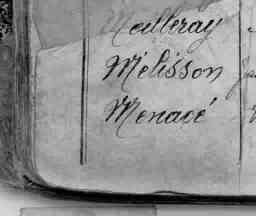 Meilleray
Mélisson
Menagé